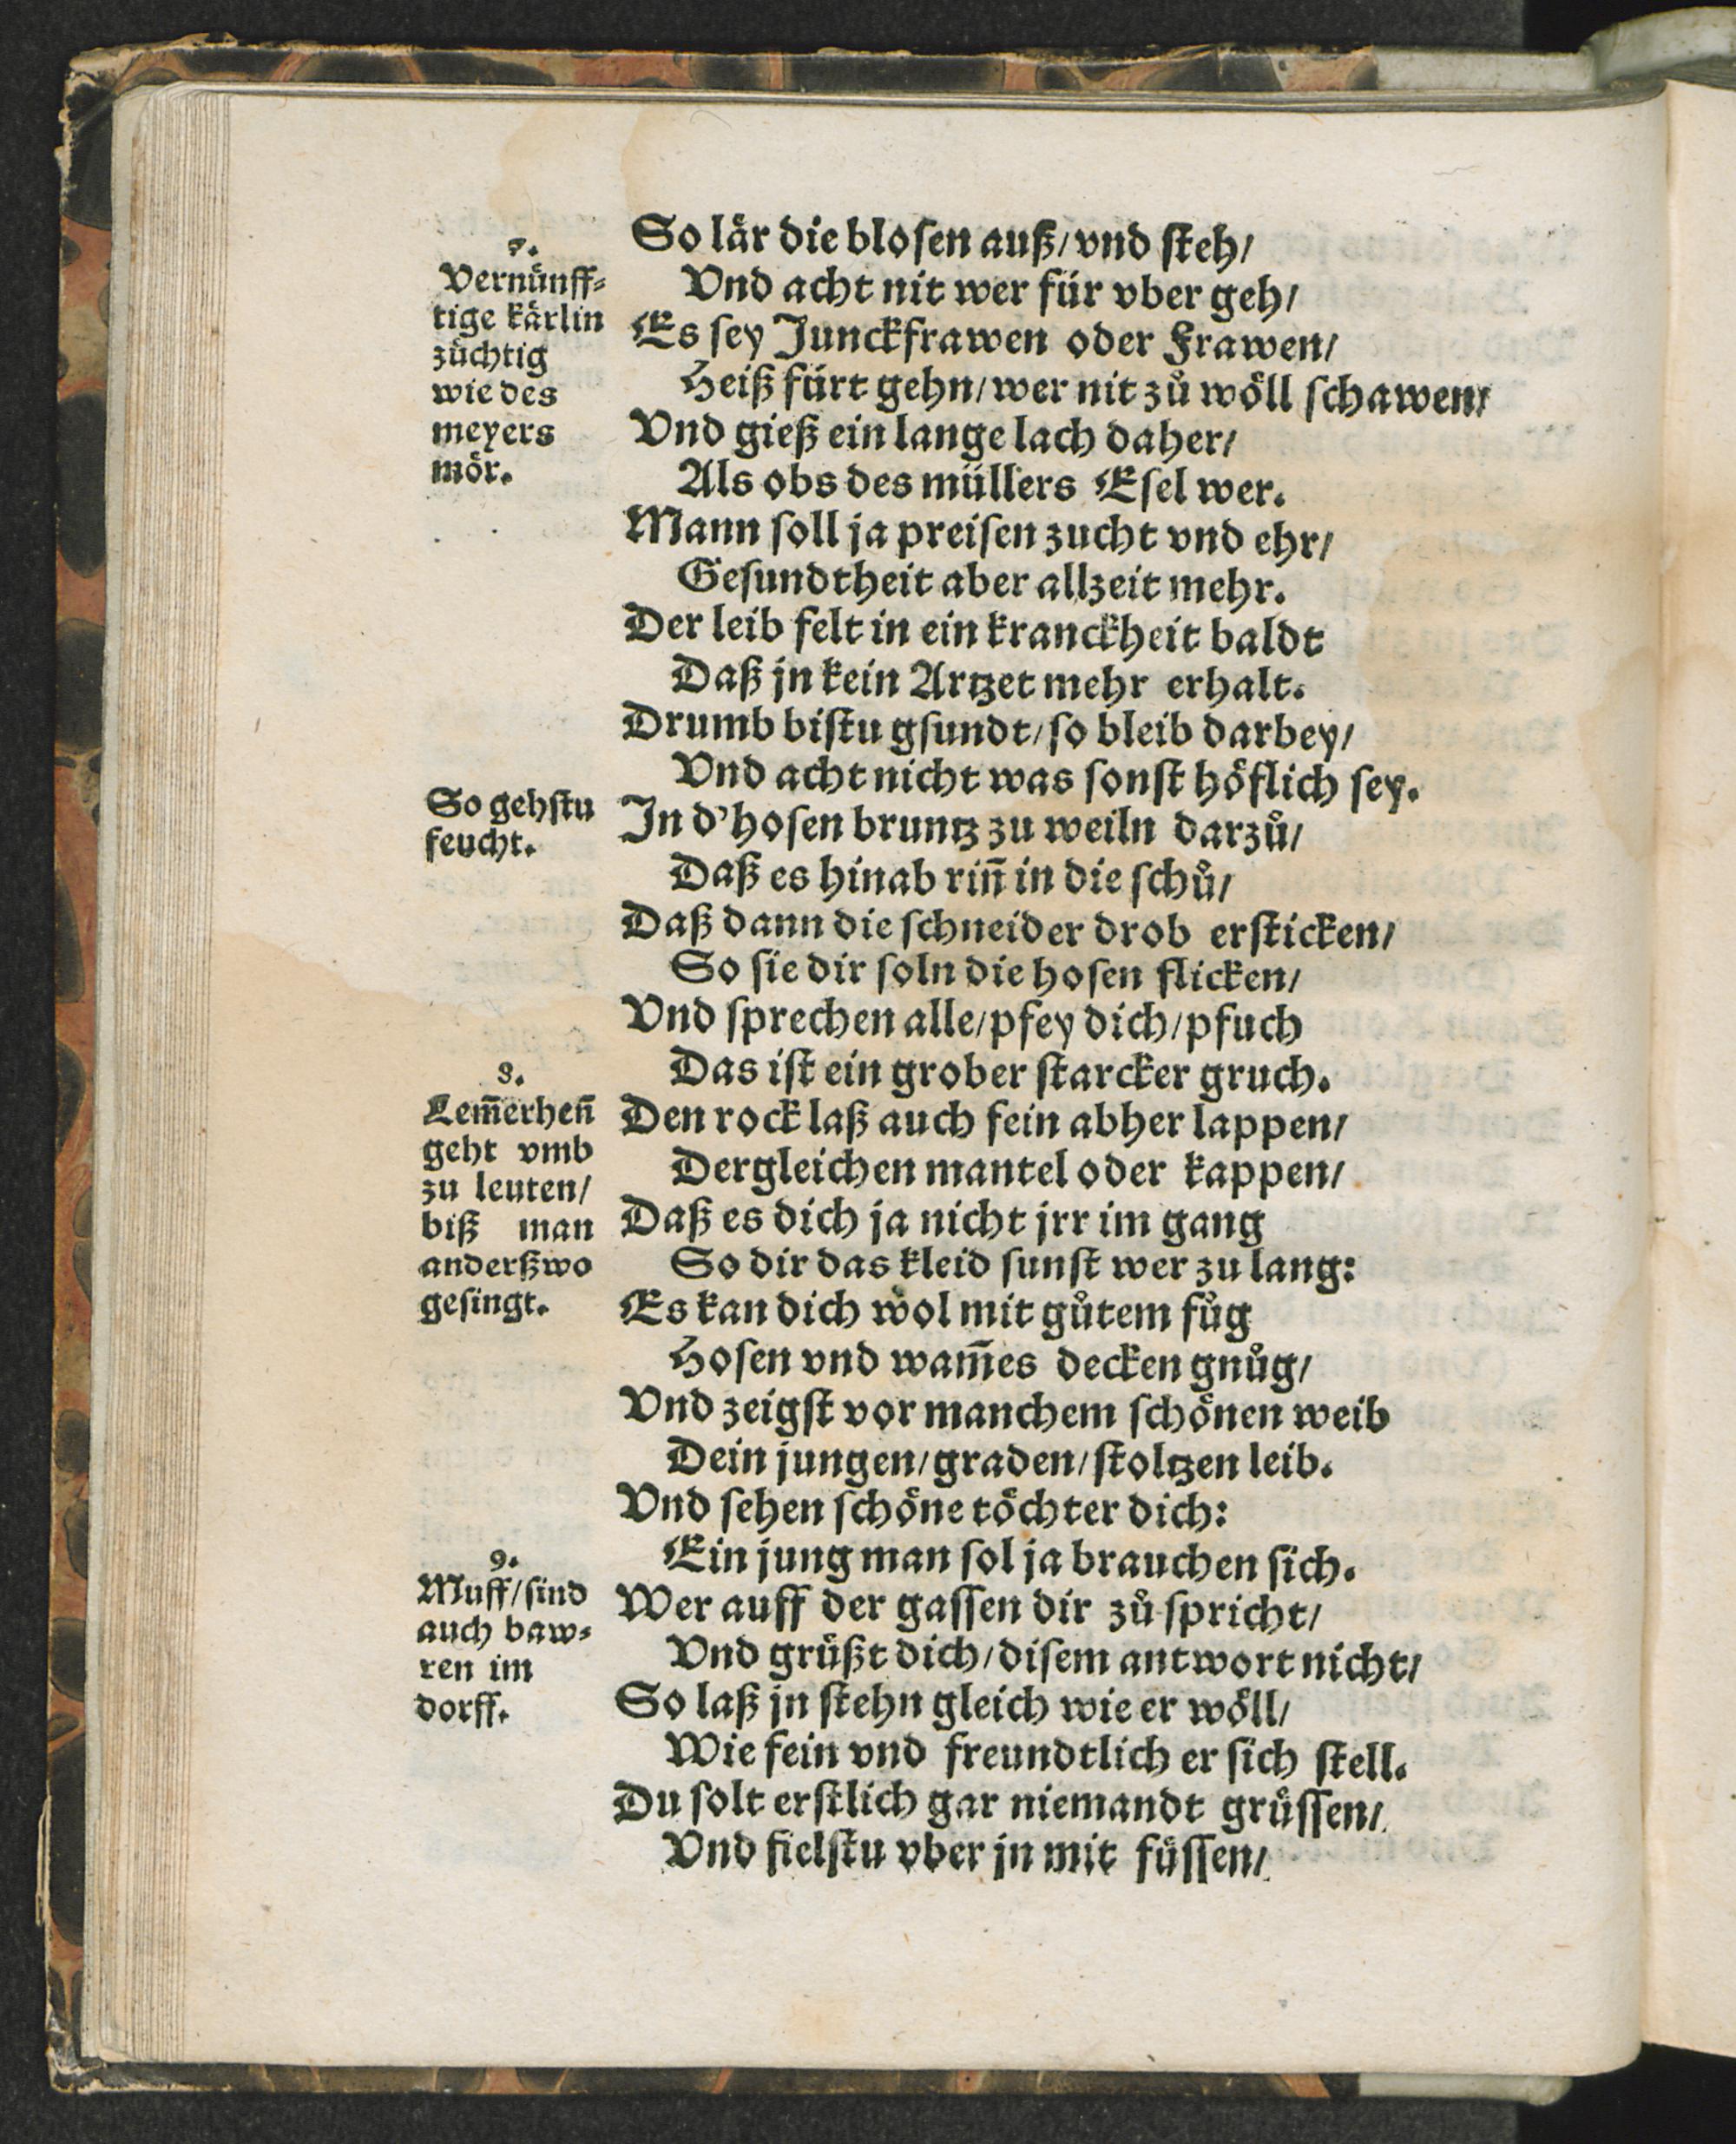 So lår die blosen auß/ vnd steh/
Vnd acht nit wer für vber geh/
Es sey Junckfrawen oder Frawen/
Heiß fürt gehn/ wer nit zů wöll schawen/
Vnd gieß ein lange lach daher/
Als obs des müllers Esel wer.
Mann soll ja preisen zucht vnd ehr/
Gesundtheit aber allzeit mehr.
Der leib felt in ein kranckheit baldt
Daß jn kein Artzet mehr erhalt.
Drumb bistu gsundt/ so bleib darbey/
Vnd acht nicht was sonst höflich sey.
In d'hosen bruntz zu weiln darzů/
Daß es hinab rin̄ in die schů/
Daß dann die schneider drob ersticken/
So sie dir soln die hosen flicken/
Vnd sprechen alle/ pfey dich/ pfuch
Das ist ein grober starcker gruch.
Den rock laß auch fein abher lappen/
Dergleichen mantel oder kappen/
Daß es dich ja nicht jrr im gang
So dir das kleid sunst wer zu lang:
Es kan dich wol mit gůtem fůg
Hosen vnd wam̄es decken gnůg/
Vnd zeigst vor manchem schönen weib
Dein jungen/ graden/ stoltzen leib.
Vnd sehen schöne töchter dich:
Ein jung man sol ja brauchen sich.
Wer auff der gassen dir zů spricht/
Vnd grüßt dich/ disem antwort nicht/
So laß jn stehn gleich wie er wöll/
Wie fein vnd freundtlich er sich stell.
Du solt erstlich gar niemandt grüssen/
Vnd fielstu vber jn mit füssen/
7.
Vernünff-
tige kärlin
züchtig
wie des
meyers
mör.
So gehstu
feucht.
8.
Lem̄erhen̄
geht vmb
zu leuten/
biß man
anderßwo
gesingt.
9.
Muff/ sind
auch baw-
ren im
dorff.